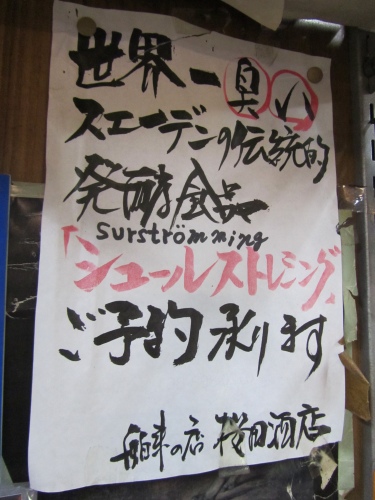 世界一臭い
スエーデンの伝統的
発酵食品
surströmming
「シュールストレミング」
ご予約承ります
舶来の店 桜田酒店